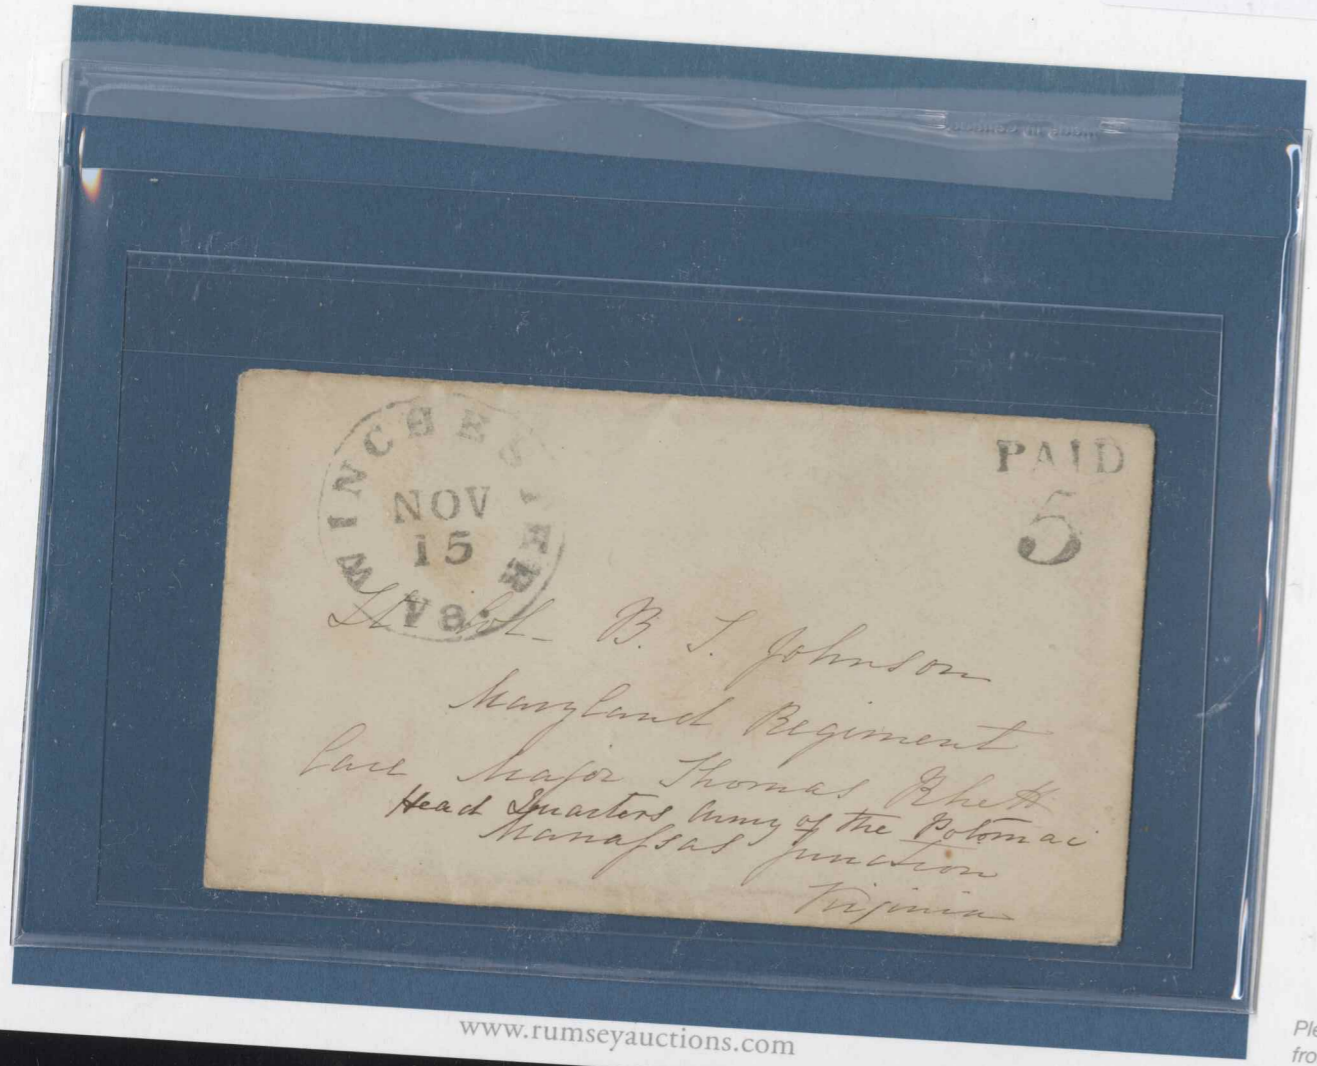 WINCHESTER Va.
NOV
15
PAID
5
Lt Col. B. T. Johnson
Maryland Regiment
Care Major Thomas Rhett
Head Quarters Army of the Potomac
Manassas Junction
Virginia
www.rumseyauctions.com
Ple
fro